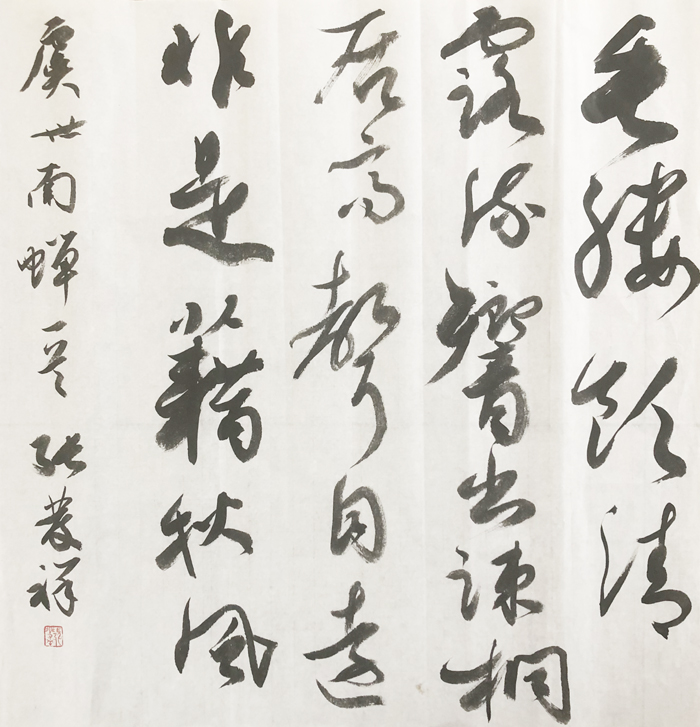 垂緌飲清
露流響出疎桐
居高聲自遠
非是藉秋風
虞世南蝉一首 张發祥